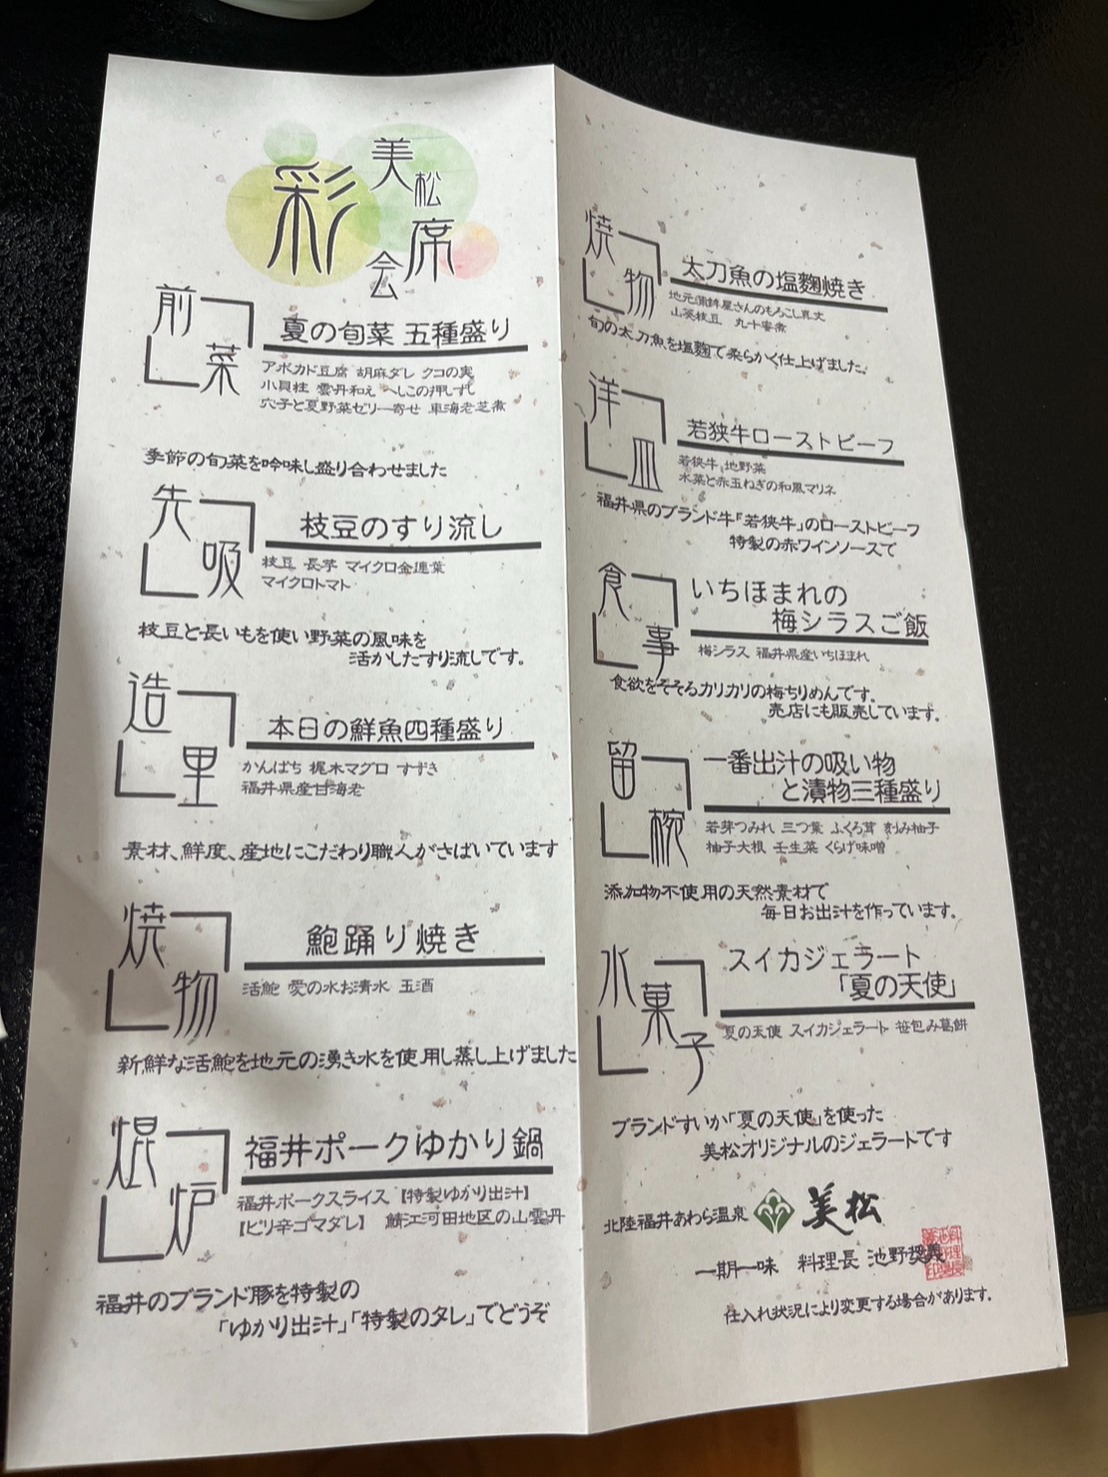 美松
彩 会席
前菜
夏の旬菜 五種盛り
アボカド豆腐 胡麻ダレ クコの実
小貝柱 雲丹和え へしこの押しずし
穴子と夏野菜ゼリー寄せ 車海老芝煮
季節の旬菜を吟味し盛り合わせました
先吸
枝豆のすり流し
枝豆 長芋 マイクロ金蓮葉
マイクロトマト
枝豆と長いもを使い野菜の風味を
活かしたすり流しです。
造里
本日の鮮魚四種盛り
かんぱち 梶木マグロ すずき
福井県産甘海老
素材、鮮度、産地にこだわり職人がさばいています
焼物
鮑踊り焼き
活鮑 愛の水お清水 玉酒
新鮮な活鮑を地元の湧き水を使用し蒸し上げました
焜炉
福井ポークゆかり鍋
福井ポークスライス 【特製ゆかり出汁】
【ピリ辛ゴマダレ】 鯖江河田地区の山雲丹
福井のブランド豚を特製の
「ゆかり出汁」「特製のタレ」でどうぞ
焼物
太刀魚の塩麴焼き
地元蒲鉾屋さんのもろこし真丈
山葵枝豆 丸十蜜煮
旬の太刀魚を塩麴で柔らかく仕上げました。
洋皿
若狭牛ローストビーフ
若狭牛 地野菜
水菜と赤玉ねぎの和風マリネ
福井県のブランド牛「若狭牛」のローストビーフ
特製の赤ワインソースで
食事
いちほまれの
梅シラスご飯
梅シラス 福井県産いちほまれ
食欲をそそるカリカリの梅ちりめんです。
売店にも販売しています。
留椀
一番出汁の吸い物
と漬物三種盛り
若芽つみれ 三つ葉 ふくろ茸 刻み柚子
柚子大根 壬生菜 くらげ味噌
添加物不使用の天然素材で
毎日お出汁を作っています。
水菓子
スイカジェラート
「夏の天使」
夏の天使 スイカジェラート 笹包み葛餅
ブランドすいか「夏の天使」を使った
美松オリジナルのジェラートです
北陸福井あわら温泉 美松
一期一味 料理長 池野奨義
仕入れ状況により変更する場合があります。